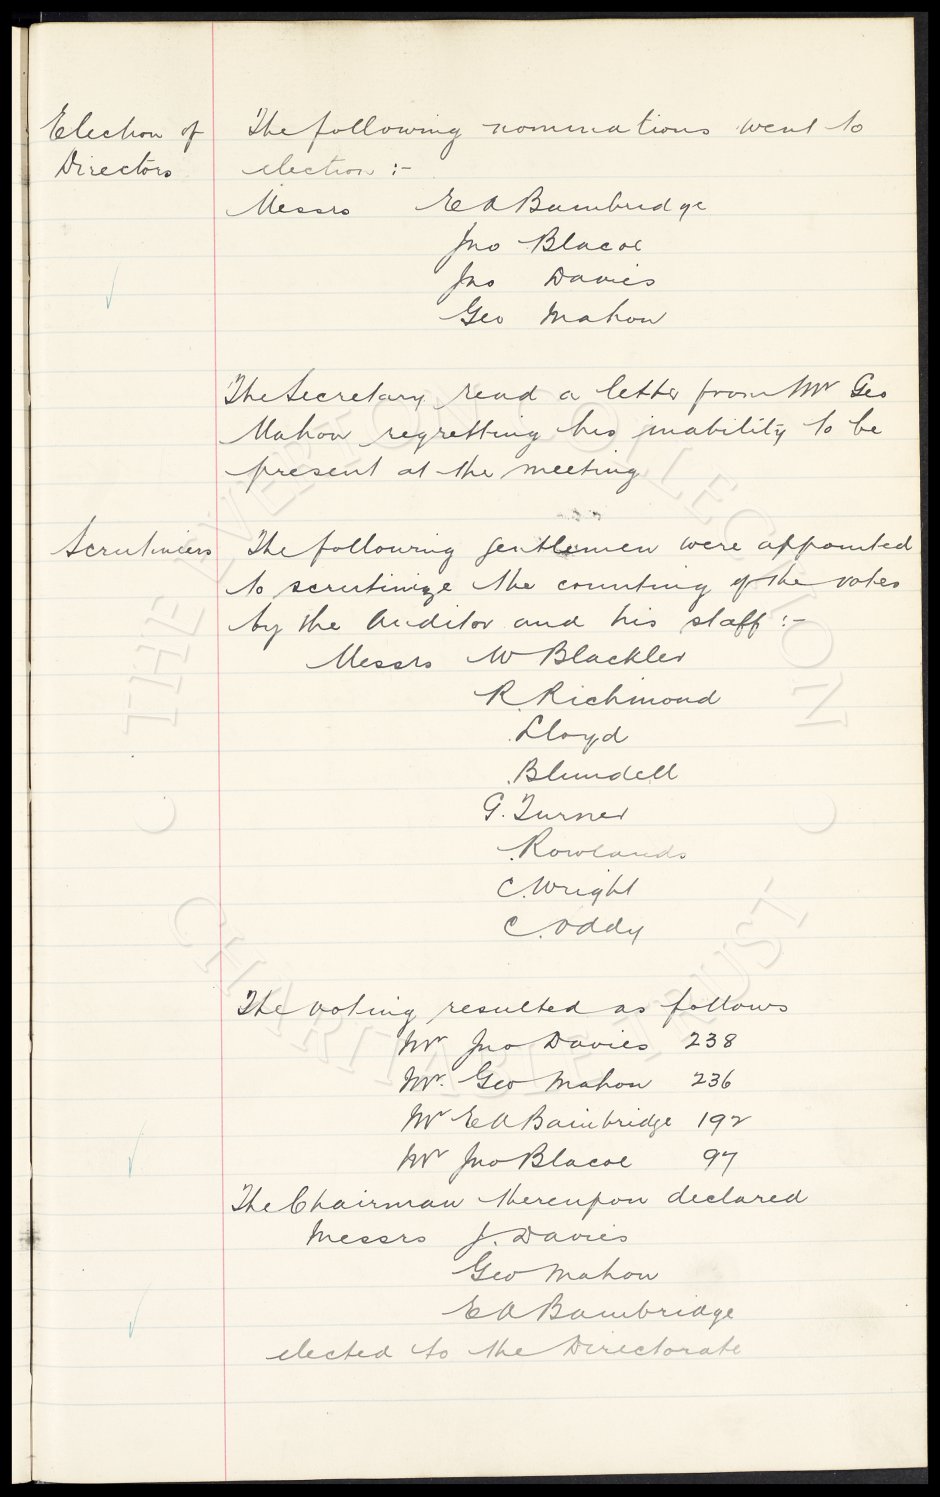 Election of
Directors
The following nominations went to
election :-
Messrs E A Bainbridge
Jno Blacoe
Jno Davies
Geo Mahon
The Secretary read a letter from Mr Geo
Mahon regretting his inability to be
present at the meeting
Scrutineers
The following gentlemen were appointed
to scrutinize the counting of the votes
by the Auditor and his staff :-
Messrs W Blackler
R. Richmond
. Lloyd
. Blundell
G. Turner
. Rowlands
C. Wright
C. Oddy
The voting resulted as follows
Mr Jno Davies 238
Mr. Geo Mahon 236
Mr E A Bainbridge 192
Mr Jno Blacoe 97
The Chairman thereupon declared
Messrs J. Davies
Geo Mahon
E A Bainbridge
elected to the Directorate
THE EVERTON COLLECTION
CHARITABLE TRUST